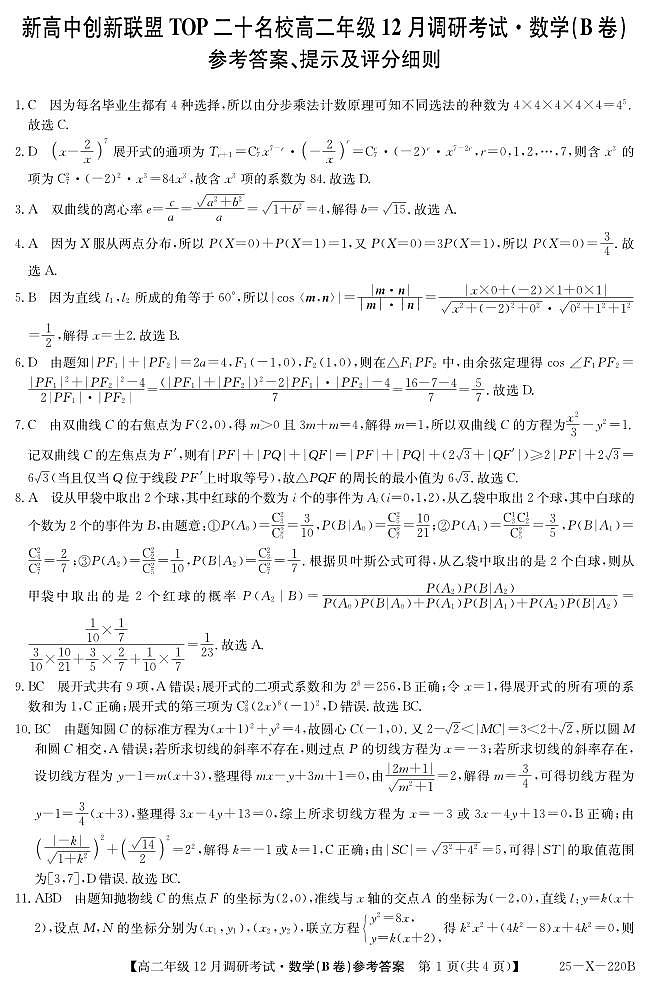 新高中创新联盟 TOP 二十名校高二年级 12 月调研考试·数学(B 卷)
参考答案、提示及评分细则
1. C 因为每名毕业生都有 4 种选择,所以由分步乘法计数原理可知不同选法的种数为 4×4×4×4×4=4⁵.
故选 C.
2. D (x−2/x)⁷ 展开式的通项为 Tᵣ₊₁=C₇ʳx⁷⁻ʳ·(−2/x)ʳ=C₇ʳ·(−2)ʳ·x⁷⁻²ʳ,r=0,1,2,…,7,则含 x³ 的
项为 C₇²·(−2)²·x³=84x³,故含 x³ 项的系数为 84. 故选 D.
3. A 双曲线的离心率 e=c/a=√(a²+b²)/a=√(1+b²)=4,解得 b=√15. 故选 A.
4. A 因为 X 服从两点分布,所以 P(X=0)+P(X=1)=1,又 P(X=0)=3P(X=1),所以 P(X=0)=3/4. 故
选 A.
5. B 因为直线 l₁,l₂ 所成的角等于 60°,所以|cos〈m,n〉|=|m·n|/(|m|·|n|)=|x×0+(−2)×1+0×1|/(√(x²+(−2)²+0²)·√(0²+1²+1²))
=1/2,解得 x=±2. 故选 B.
6. D 由题知|PF₁|+|PF₂|=2a=4,F₁(−1,0),F₂(1,0),则在△F₁PF₂ 中,由余弦定理得 cos ∠F₁PF₂=
(|PF₁|²+|PF₂|²−4)/(2|PF₁|·|PF₂|)=((|PF₁|+|PF₂|)²−2|PF₁|·|PF₂|−4)/7=(16−7−4)/7=5/7. 故选 D.
7. C 由双曲线 C 的右焦点为 F(2,0),得 m>0 且 3m+m=4,解得 m=1,所以双曲线 C 的方程为x²/3−y²=1.
记双曲线 C 的左焦点为 F′,则有|PF|+|PQ|+|QF|=|PF|+|PQ|+(2√3+|QF′|)≥2|PF|+2√3=
6√3(当且仅当 Q 位于线段 PF′上时取等号),故△PQF 的周长的最小值为 6√3. 故选 C.
8. A 设从甲袋中取出 2 个球,其中红球的个数为 i 个的事件为 Aᵢ(i=0,1,2),从乙袋中取出 2 个球,其中白球的
个数为 2 个的事件为 B,由题意:①P(A₀)=C₃²/C₅²=3/10,P(B|A₀)=C₅²/C₇²=10/21;②P(A₁)=C₃¹C₂¹/C₅²=3/5,P(B|A₁)=
C₄²/C₇²=2/7;③P(A₂)=C₂²/C₅²=1/10,P(B|A₂)=C₃²/C₇²=1/7. 根据贝叶斯公式可得,从乙袋中取出的是 2 个白球,则从
甲袋中取出的是 2 个红球的概率 P(A₂|B)=P(A₂)P(B|A₂)/(P(A₀)P(B|A₀)+P(A₁)P(B|A₁)+P(A₂)P(B|A₂))=
(1/10×1/7)/(3/10×10/21+3/5×2/7+1/10×1/7)=1/23. 故选 A.
9. BC 展开式共有 9 项,A 错误;展开式的二项式系数和为 2⁸=256,B 正确;令 x=1,得展开式的所有项的系
数和为 1,C 正确;展开式的第三项为 C₈²(2x)⁶(−1)²,D 错误. 故选 BC.
10. BC 由题知圆 C 的标准方程为(x+1)²+y²=4,故圆心 C(−1,0). 又 2−√2<|MC|=3<2+√2,所以圆 M
和圆 C 相交,A 错误;若所求切线的斜率不存在,则过点 P 的切线方程为 x=−3;若所求切线的斜率存在,
设切线方程为 y−1=m(x+3),整理得 mx−y+3m+1=0,由|2m+1|/√(m²+1)=2,解得 m=3/4,可得切线方程为
y−1=3/4(x+3),整理得 3x−4y+13=0,综上所求切线方程为 x=−3 或 3x−4y+13=0,B 正确;由
(|−k|/√(1+k²))²+(√14/2)²=2²,解得 k=−1 或 k=1,C 正确;由|SC|=√(3²+4²)=5,可得|ST|的取值范围
为[3,7],D 错误. 故选 BC.
11. ABD 由题知抛物线 C 的焦点 F 的坐标为(2,0),准线与 x 轴的交点 A 的坐标为(−2,0),直线 l:y=k(x+
2),设点 M,N 的坐标分别为(x₁,y₁),(x₂,y₂),联立方程{y²=8x, y=k(x+2), 得 k²x²+(4k²−8)x+4k²=0,则
【高二年级 12 月调研考试·数学(B 卷)参考答案 第 1 页(共 4 页)】 25−X−220B